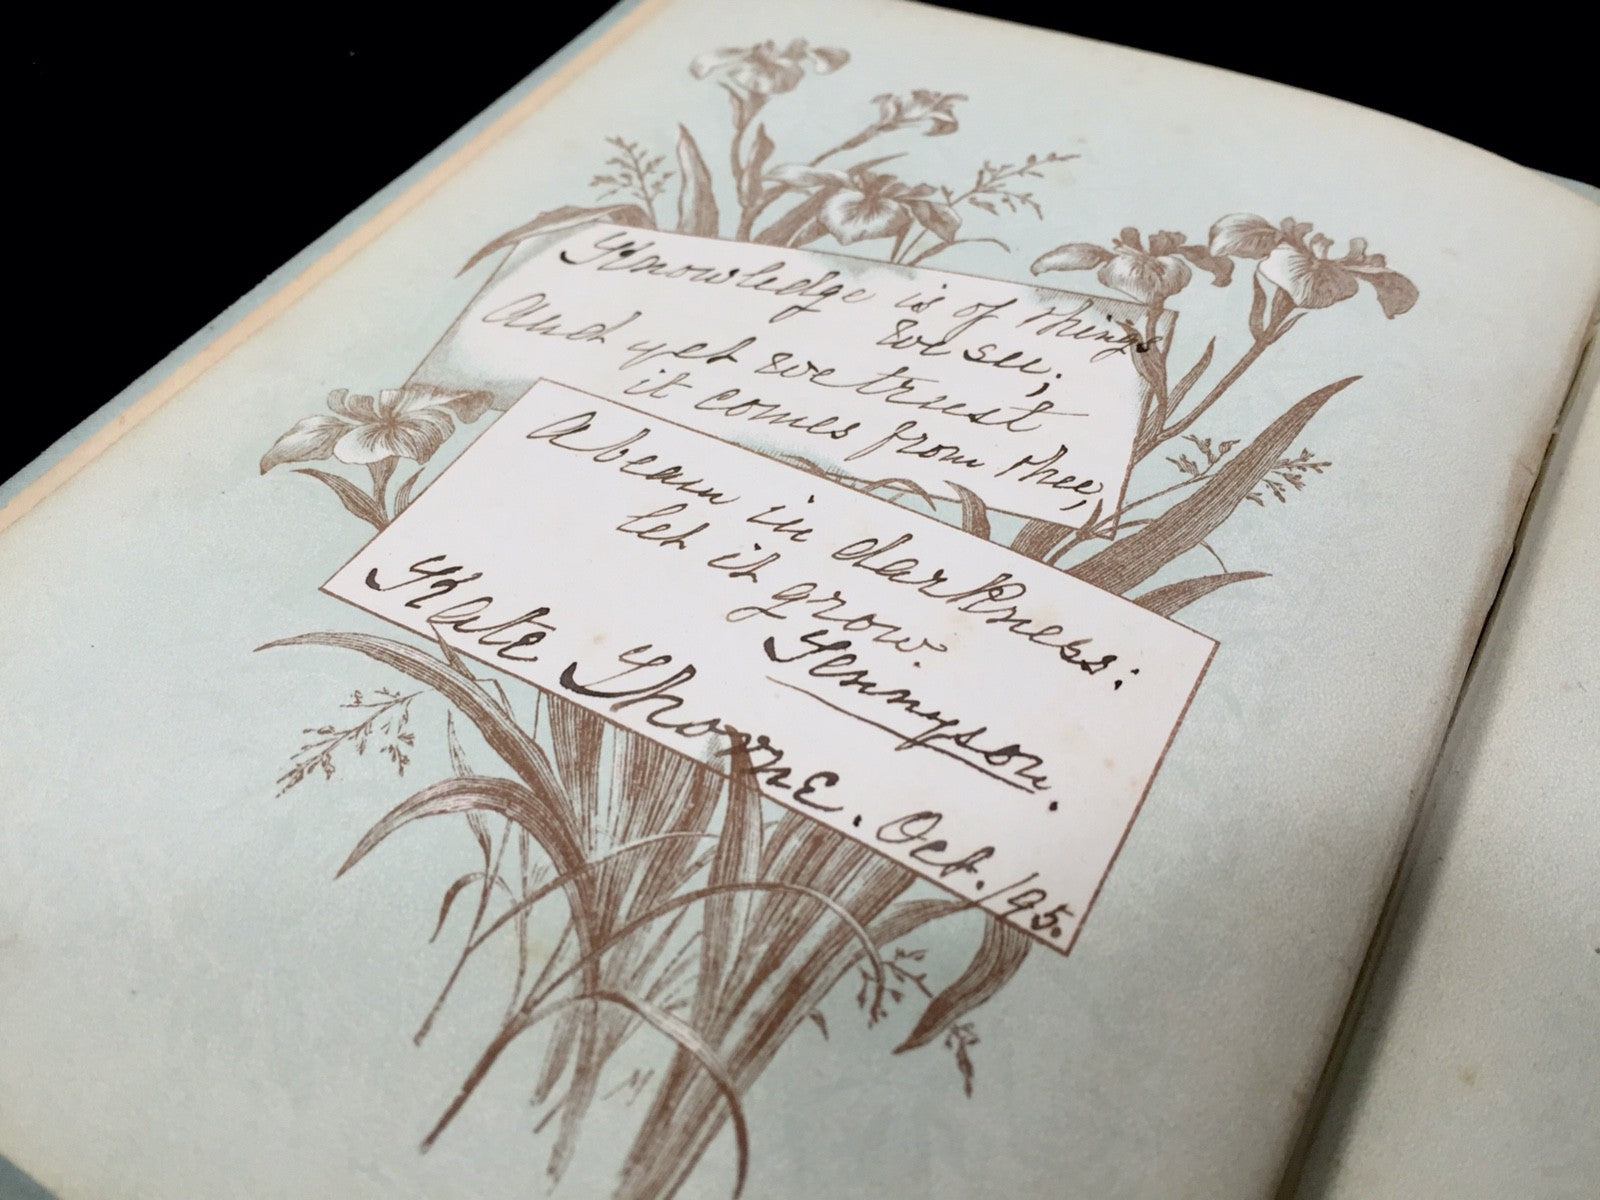 Knowledge is of things
we see;
And yet we trust
it comes from thee,
A beam in darkness:
let it grow.
Tennyson.
Kate Thorne. Oct. '95.